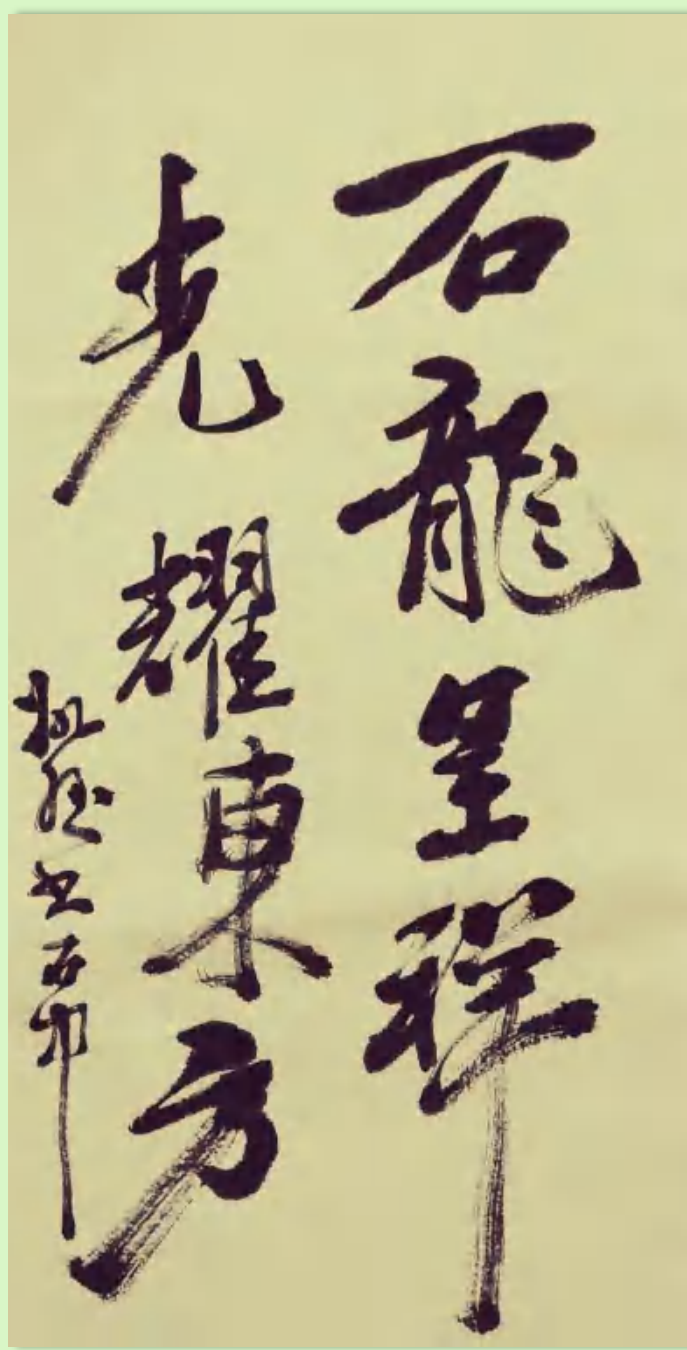 石龍呈祥
光耀東方